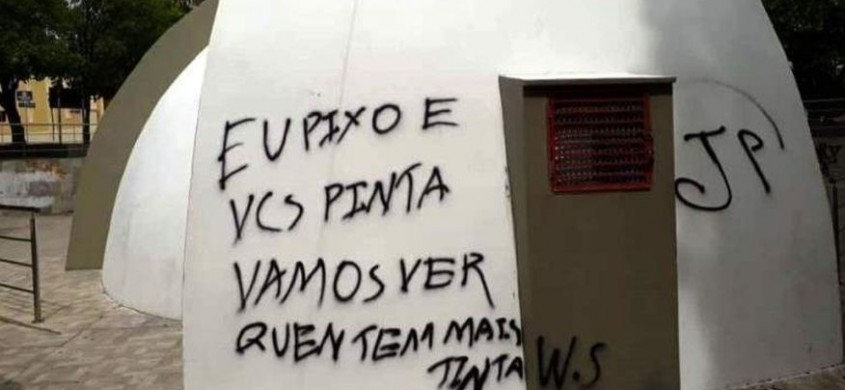 EU PIXO E
VCS PINTA
VAMOS VER
QUEN TEM MAIS
TINTA
W.S
JP